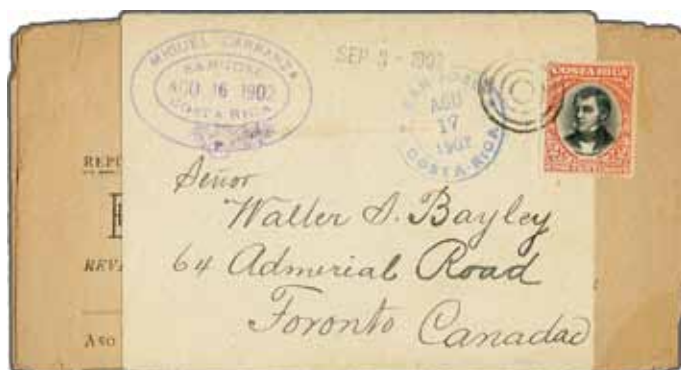 MIGUEL CARRANZA
SAN JOSE
AGO 16 1902
COSTA RICA
SEP 3 - 1902
SAN JOSE
AGO
17
1902
COSTA-RICA
COSTA RICA
REPÚ
REV
AÑO
Señor
Walter S. Bayley
64 Admerial Road
Toronto Canada